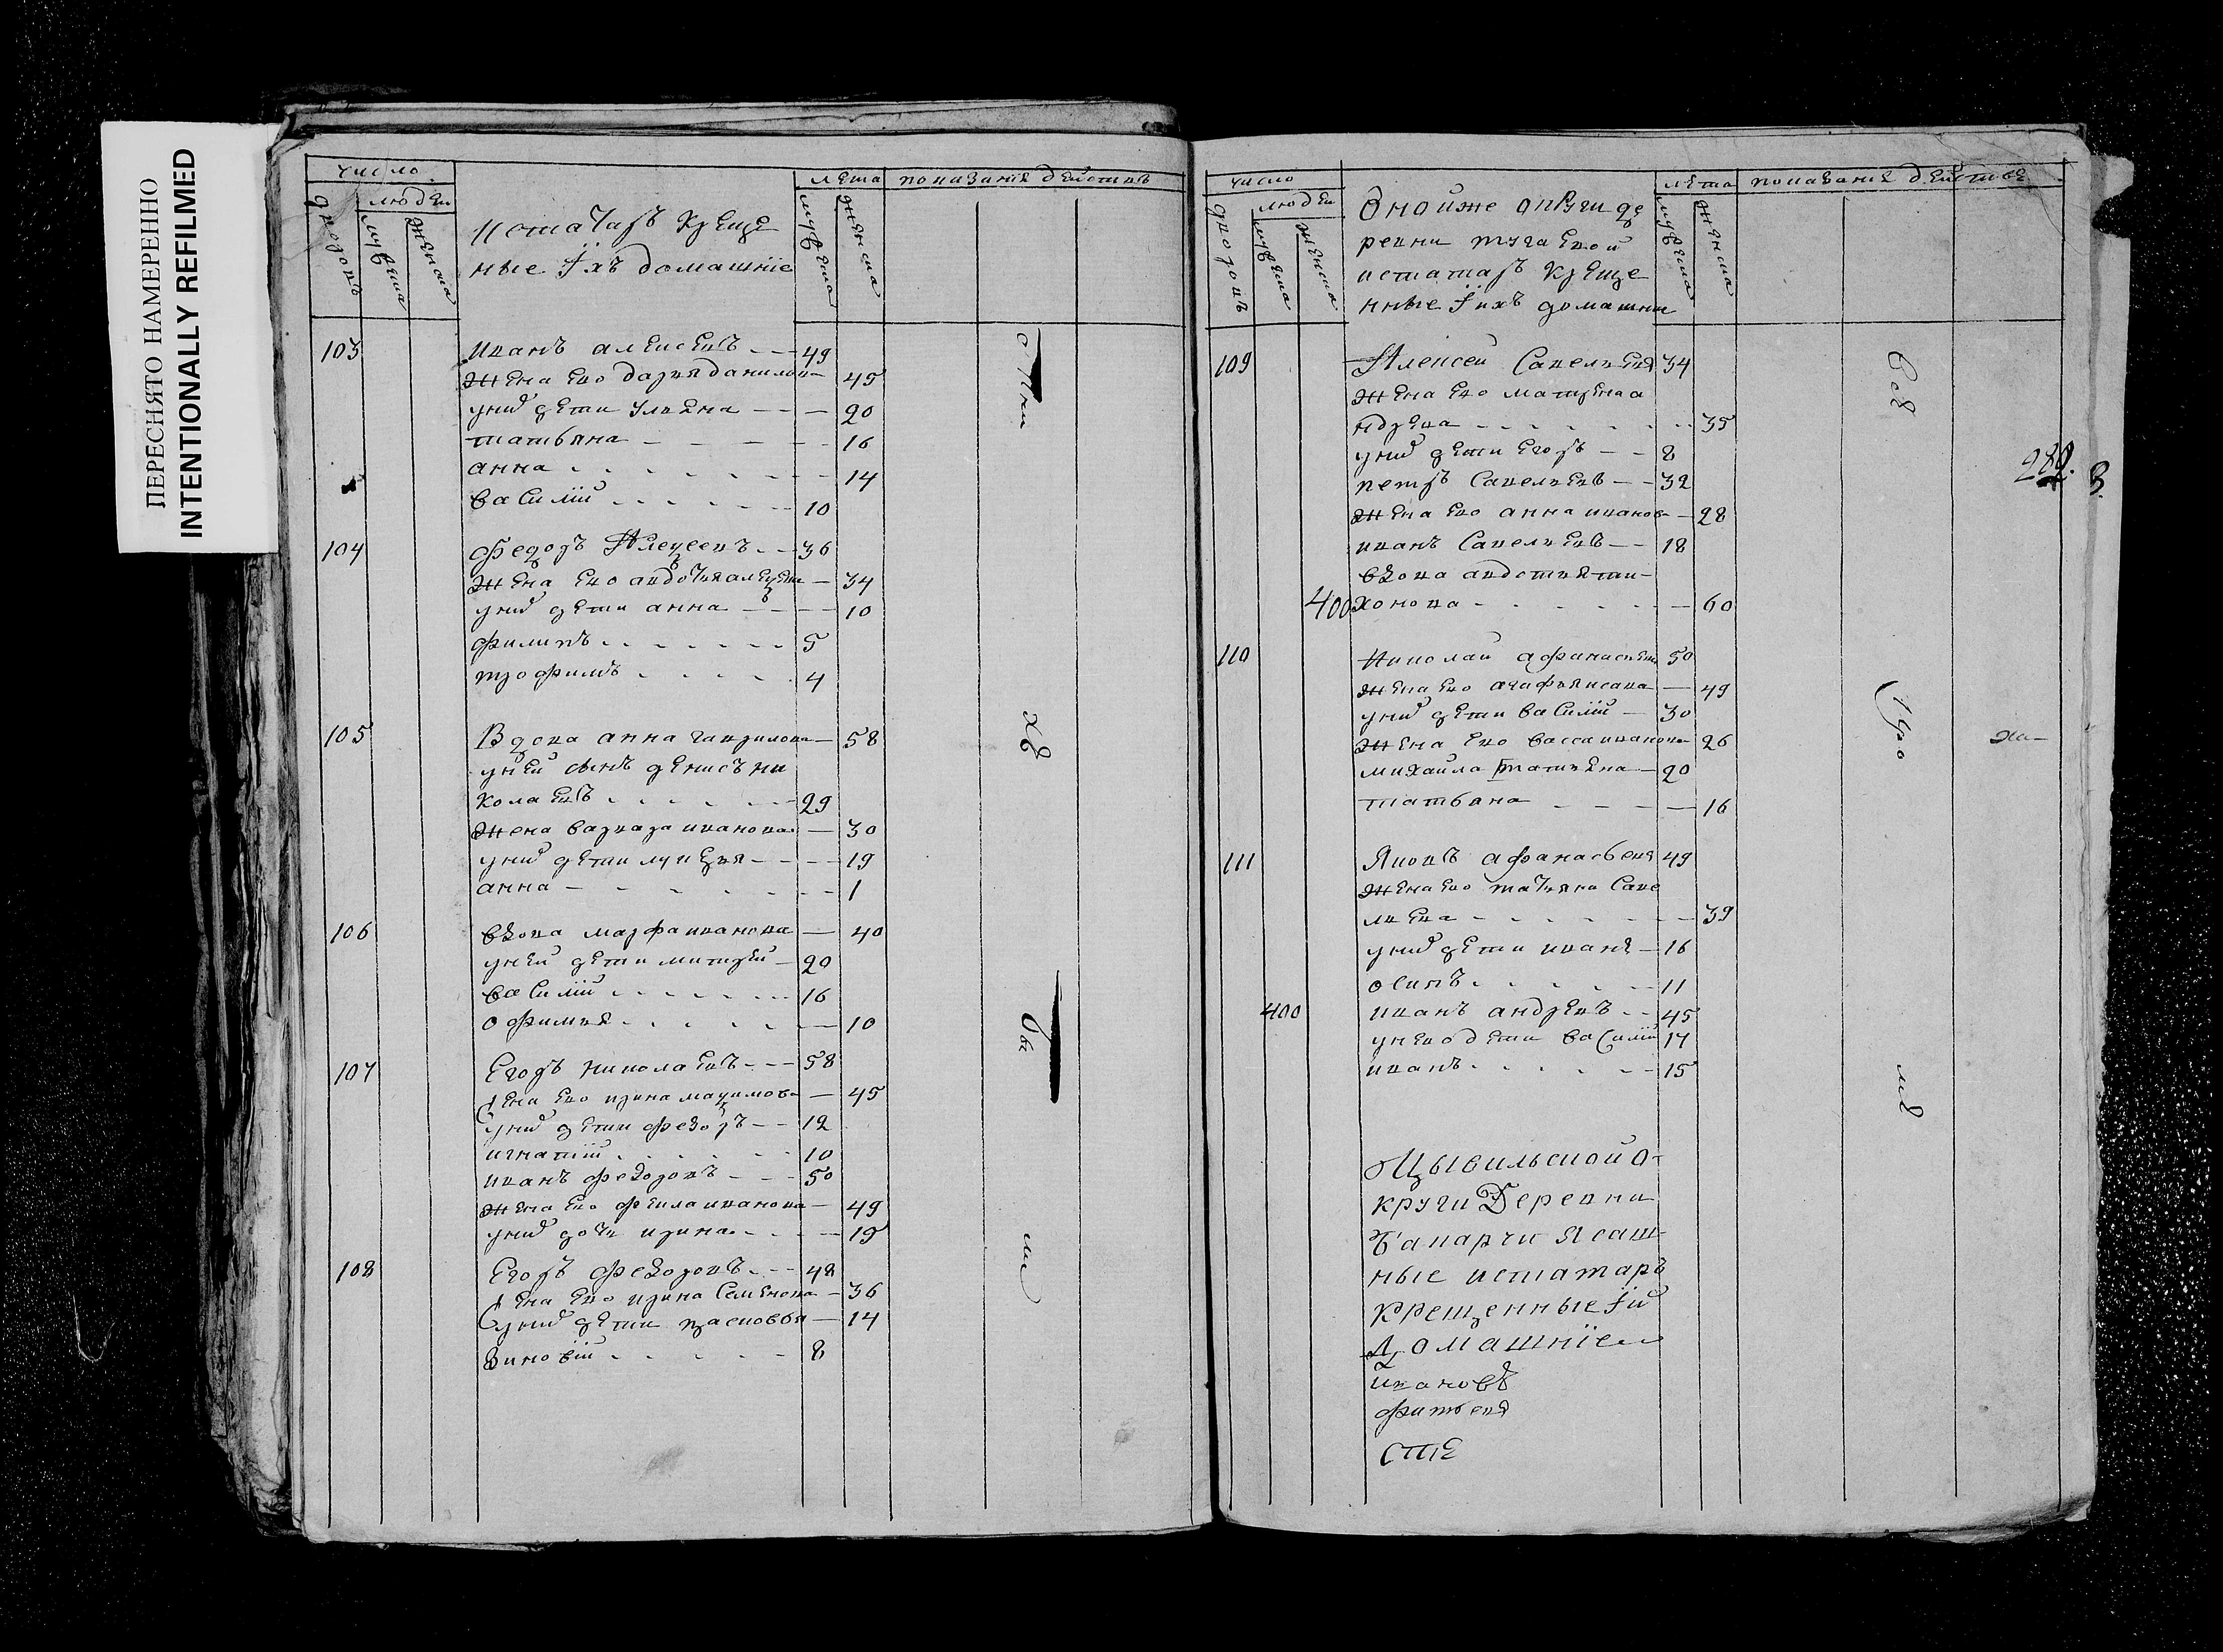 ПЕРЕСНЯТО НАМЕРЕННО
INTENTIONALLY REFILMED
число
людей
дворовъ
мужеска
женска
истатаръ креще
ные їхъ домашнїе
лета
мужеска
женска
показание действъ
103 Иванъ алексеевъ 49
жена ево дарья данилова 45
унихъ дети ульяна 20
татьяна 16
анна 14
василїй 10
104 федоръ Алексеевъ 36
жена ево авдотья алексеева 34
унихъ дети анна 10
филипъ 5
трофимъ 4
105 Вдова анна гаврилова 58
уней сынъ денисъ ни
колаевъ 29
жена варвара иванова 30
унихъ дети лукерья 19
анна 1
106 вдова марфа иванова 40
уней дети митрей 20
василїй 16
офимья 10
107 Егоръ николаевъ 58
жена ево ирина максимова 45
унихъ дети федоръ 12
игнатїй 10
иванъ федоровъ 50
жена ево фекла иванова 49
унихъ дочь ирина 19
108 Егоръ федоровъ 48
жена ево ирина семенова 36
унихъ дети прасковья 14
Зиновїй 8
число
людей
дворовъ
мужеска
женска
Оной же округи де
ревни тугаевой
истатаръ креще
нные їихъ домашни
лета
мужеска
женска
показание действъ
109 Алексей Савельевъ 34
жена ево матрена а
ндрева 35
унихъ дети егоръ 8
петръ Савельевъ 32
жена ево анна иванова 28
иванъ Савельевъ 18
вдова авдотья ти-
400 хонова 60
110 Николай афанасьевъ 50
жена ево агафья исаева 49
унихъ дети василїй 30
жена ево васса иванова 26
михайла татьяна 20
татьяна 16
111 Яковъ афанасьевъ 49
жена ево татьяна Саве
льева 39
унихъ дети иванъ 16
осипъ 11
400 иванъ андревъ 45
унево дети василїй 17
иванъ 15
Цывильской о-
круги Деревни
ясаш-
ные истатаръ
крещенные їих
Домашнїе
ивановъ
сте
Всѣ